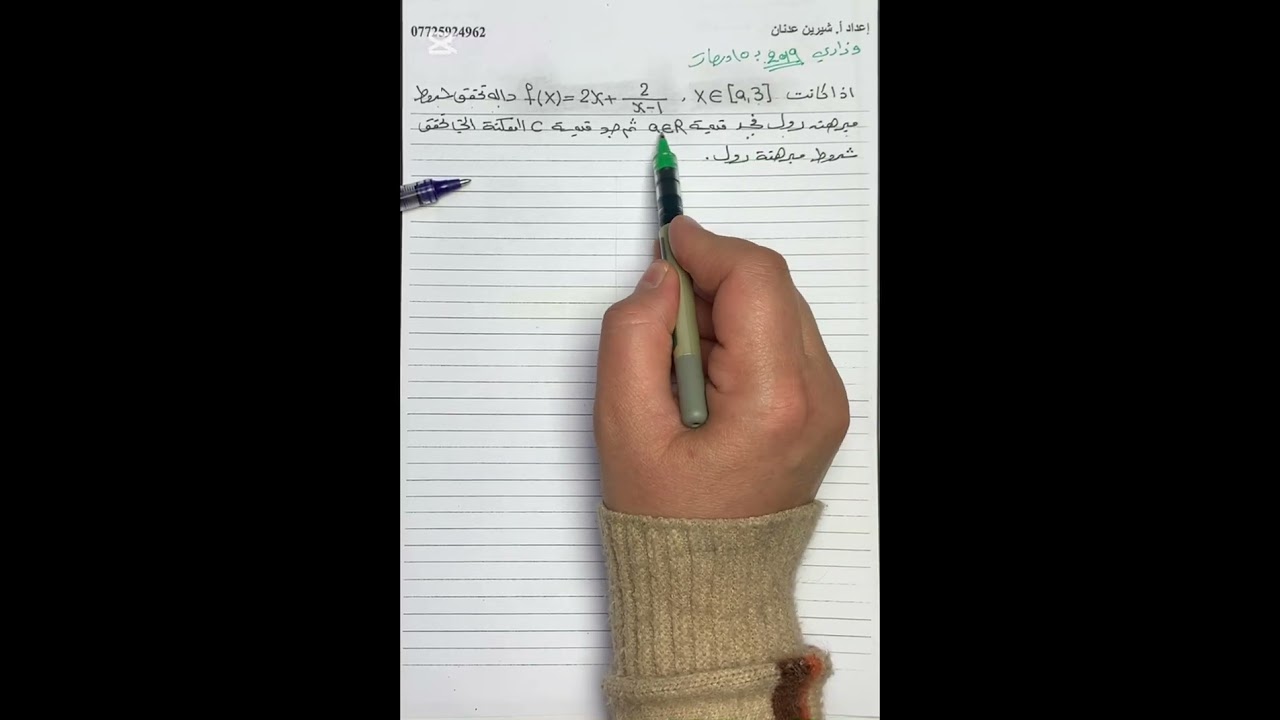 إعداد أ. شيرين عدنان
07725924962
وزاري 2019 د ١
اذا كانت f(x)=2x+\frac{2}{x-1} ، x∈[a,3] دالة تحقق شروط
مبرهنة رول فجد قيمة a∈R ثم جد قيمة C الممكنة التي تحقق
شروط مبرهنة رول.